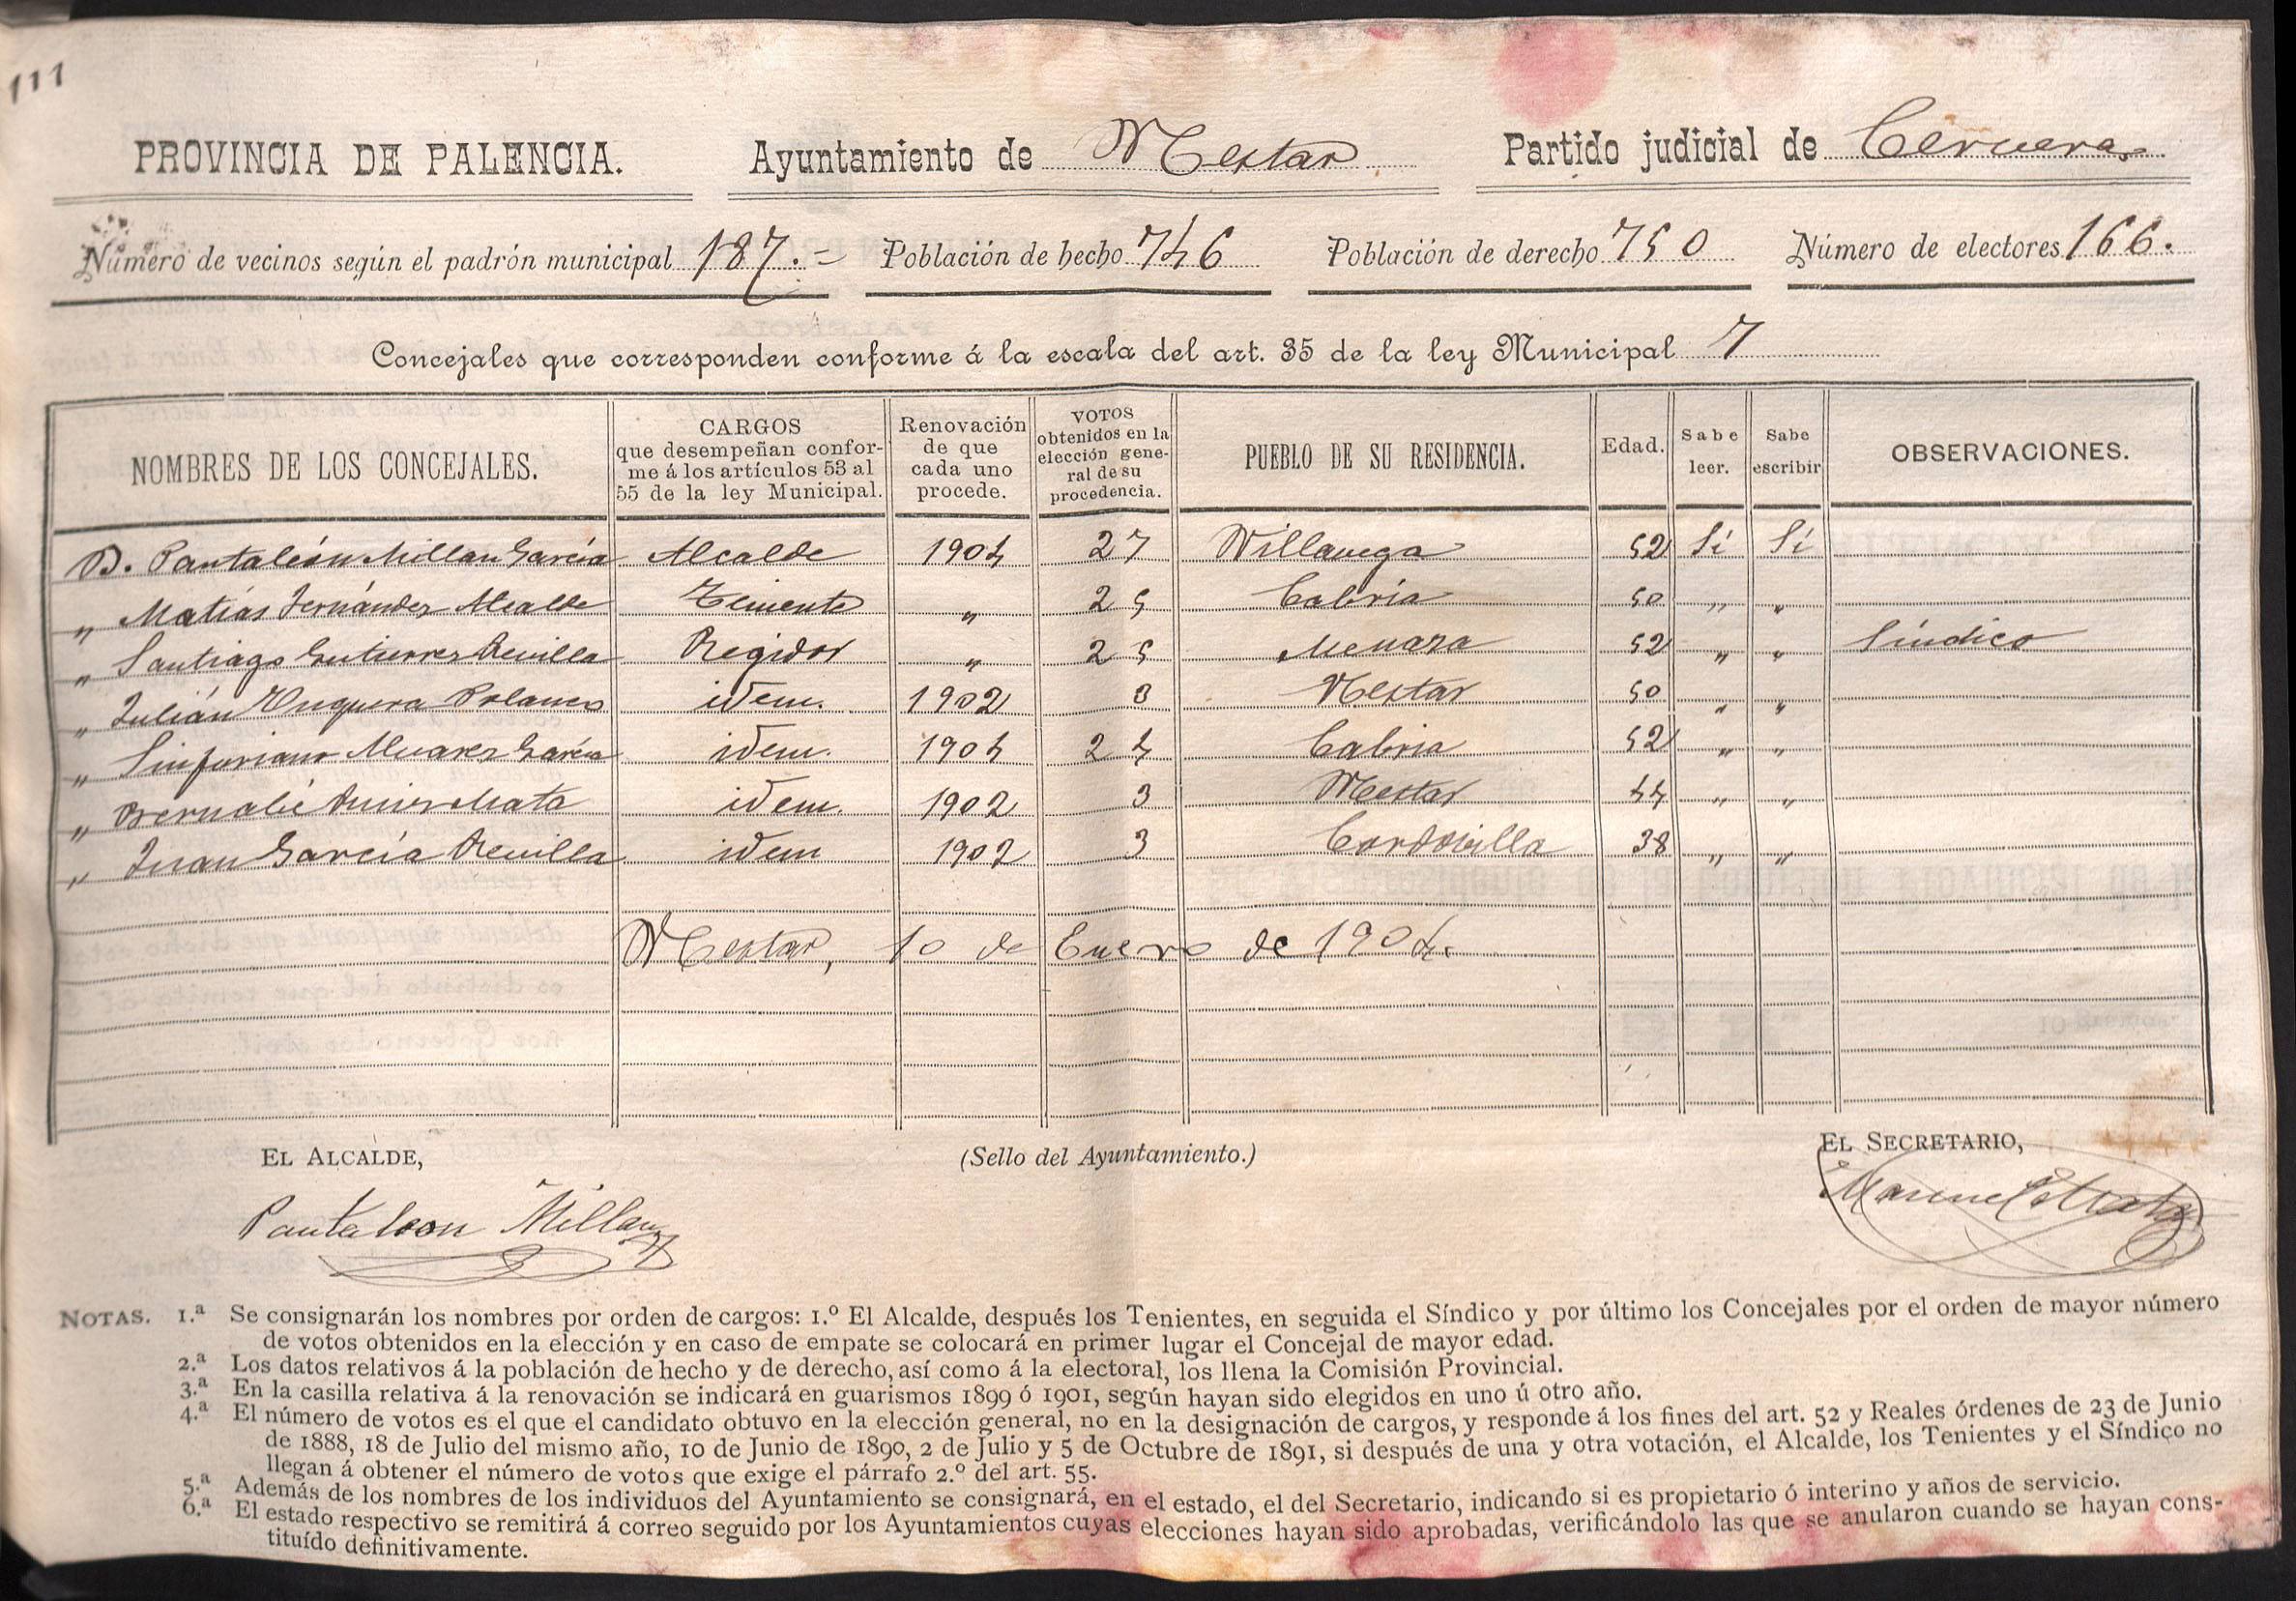 111
PROVINCIA DE PALENCIA. Ayuntamiento de Nestar Partido judicial de Cervera.
Número de vecinos según el padrón municipal 187.= Población de hecho 746 Población de derecho 750 Número de electores 166.
Concejales que corresponden conforme á la escala del art. 35 de la ley Municipal 7
NOMBRES DE LOS CONCEJALES. CARGOS que desempeñan conforme á los artículos 53 al 55 de la ley Municipal. Renovación de que cada uno procede. VOTOS obtenidos en la elección general de su procedencia. PUEBLO DE SU RESIDENCIA. Edad. Sabe leer. Sabe escribir OBSERVACIONES.
D. Pantaleón Millan García Alcalde 1904 27 Villavega 52 Sí Sí
„ Matías Fernández Alcalde Teniente „ 25 Cabria 50 „ „
„ Santiago Gutierrez Revilla Regidor „ 25 Menaza 52 „ „ Síndico
„ Julián Unquera Polanco idem. 1902 3 Nestar 50 „ „
„ Sinforiano Alvarez García idem. 1904 24 Cabria 52 „ „
„ Bernabé Ruiz Mata idem. 1902 3 Nestar 44 „ „
„ Juan García Revilla idem 1902 3 Cordovilla 38 „ „
Nestar, 10 de Enero de 1904.
EL ALCALDE, (Sello del Ayuntamiento.) EL SECRETARIO,
Pantaleon Millan
Manuel
NOTAS. 1.ª Se consignarán los nombres por orden de cargos: 1.º El Alcalde, después los Tenientes, en seguida el Síndico y por último los Concejales por el orden de mayor número
de votos obtenidos en la elección y en caso de empate se colocará en primer lugar el Concejal de mayor edad.
2.ª Los datos relativos á la población de hecho y de derecho, así como á la electoral, los llena la Comisión Provincial.
3.ª En la casilla relativa á la renovación se indicará en guarismos 1899 ó 1901, según hayan sido elegidos en uno ú otro año.
4.ª El número de votos es el que el candidato obtuvo en la elección general, no en la designación de cargos, y responde á los fines del art. 52 y Reales órdenes de 23 de Junio
de 1888, 18 de Julio del mismo año, 10 de Junio de 1890, 2 de Julio y 5 de Octubre de 1891, si después de una y otra votación, el Alcalde, los Tenientes y el Síndico no
llegan á obtener el número de votos que exige el párrafo 2.º del art. 55.
5.ª Además de los nombres de los individuos del Ayuntamiento se consignará, en el estado, el del Secretario, indicando si es propietario ó interino y años de servicio.
6.ª El estado respectivo se remitirá á correo seguido por los Ayuntamientos cuyas elecciones hayan sido aprobadas, verificándolo las que se anularon cuando se hayan cons-
tituído definitivamente.